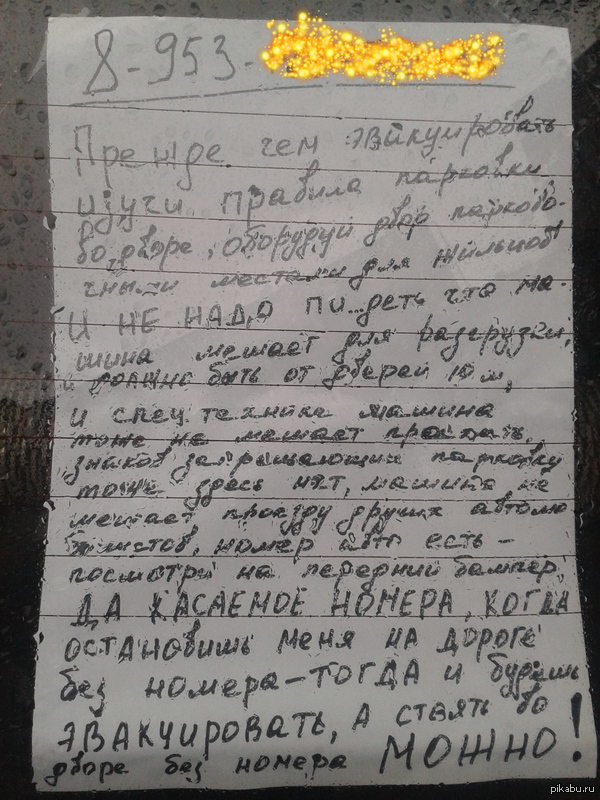 8-953-
Прежде чем эвакуировать
изучи правила парковки
во дворе, оборудуй двор парково-
чными местами для жильцов
И НЕ НАДО ПИ..деть что ма-
шина мешает для разгрузки,
должно быть от дверей 10 м,
и спец.техника машина
тоже не мешает проехать,
знаков запрещающих парковку
тоже здесь нет, машина не
мешает проезду других автолю
бителистов, номер авто есть -
посмотри на передний бампер,
ДА КАСАЕМОЕ НОМЕРА, КОГДА
остановишь меня на дороге
без номера-ТОГДА и будешь
ЭВАКУИРОВАТЬ, А стоять во
дворе без номера МОЖНО!
pikabu.ru